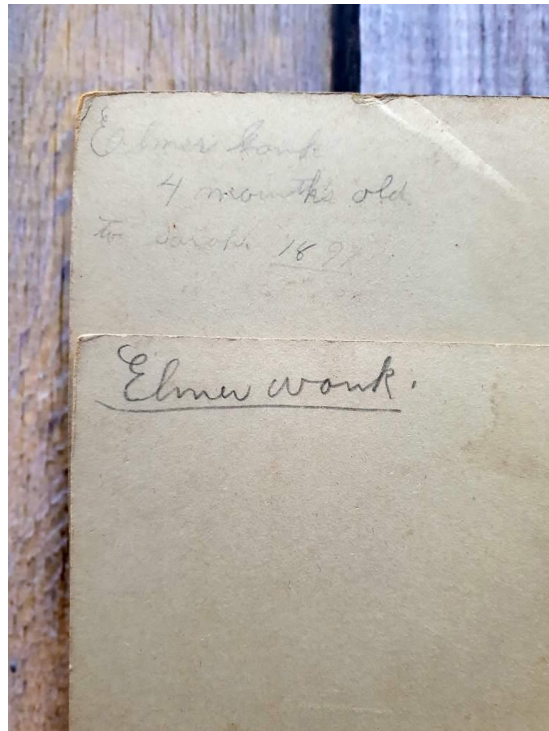 Elmer
4 months old
to Sarah 1897
Elmer wonk.